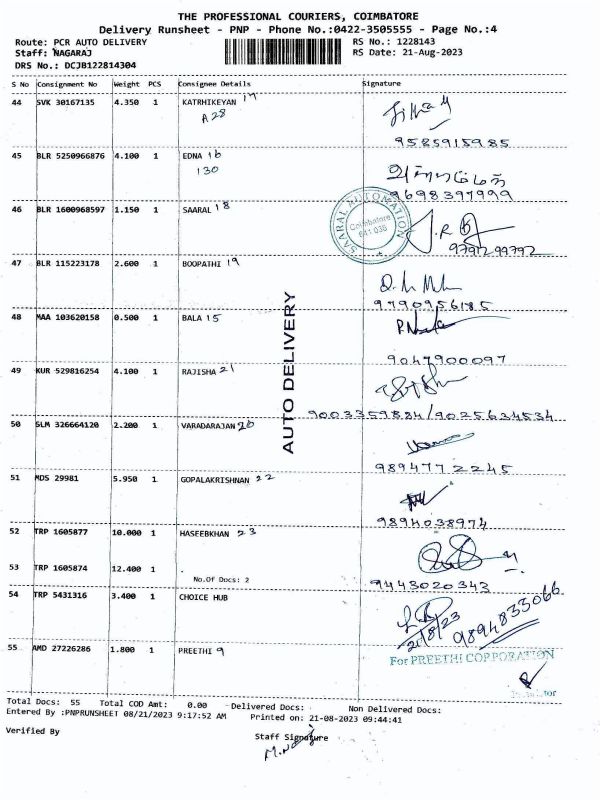 THE PROFESSIONAL COURIERS, COIMBATORE
Delivery Runsheet - PNP - Phone No.:0422-3505555 - Page No.:4
Route: PCR AUTO DELIVERY RS No.: 1228143
Staff: NAGARAJ RS Date: 21-Aug-2023
DRS No.: DCJB122814304
S No Consignment No Weight PCS Consignee Details Signature
44 SVK 30167135 4.350 1 KATRHIKEYAN 17
A 28
9585915985
45 BLR 5250966876 4.100 1 EDNA 16
130
9698397999
46 BLR 1600968597 1.150 1 SAARAL 18
SAARAL AUTOMATION
Coimbatore
641 035
9791299792
47 BLR 115223178 2.600 1 BOOPATHI 19
9790956185
48 MAA 103620158 0.500 1 BALA 15
9047900097
AUTO DELIVERY
49 KUR 529816254 4.100 1 RAJISHA 21
9003359884/9025634534
50 SLM 326664120 2.200 1 VARADARAJAN 20
9894772245
51 MDS 29981 5.950 1 GOPALAKRISHNAN 22
9894038974
52 TRP 1605877 10.000 1 HASEEBKHAN 23
53 TRP 1605874 12.400 1
No.Of Docs: 2
9443020343
54 TRP 5431316 3.400 1 CHOICE HUB
21/8/23 9894833066
55 AMD 27226286 1.800 1 PREETHI 9
For PREETHI CORPORATION
Total Docs: 55 Total COD Amt: 0.00 Delivered Docs: Non Delivered Docs:
Entered By :PNPRUNSHEET 08/21/2023 9:17:52 AM Printed on: 21-08-2023 09:44:41
Verified By Staff Signature